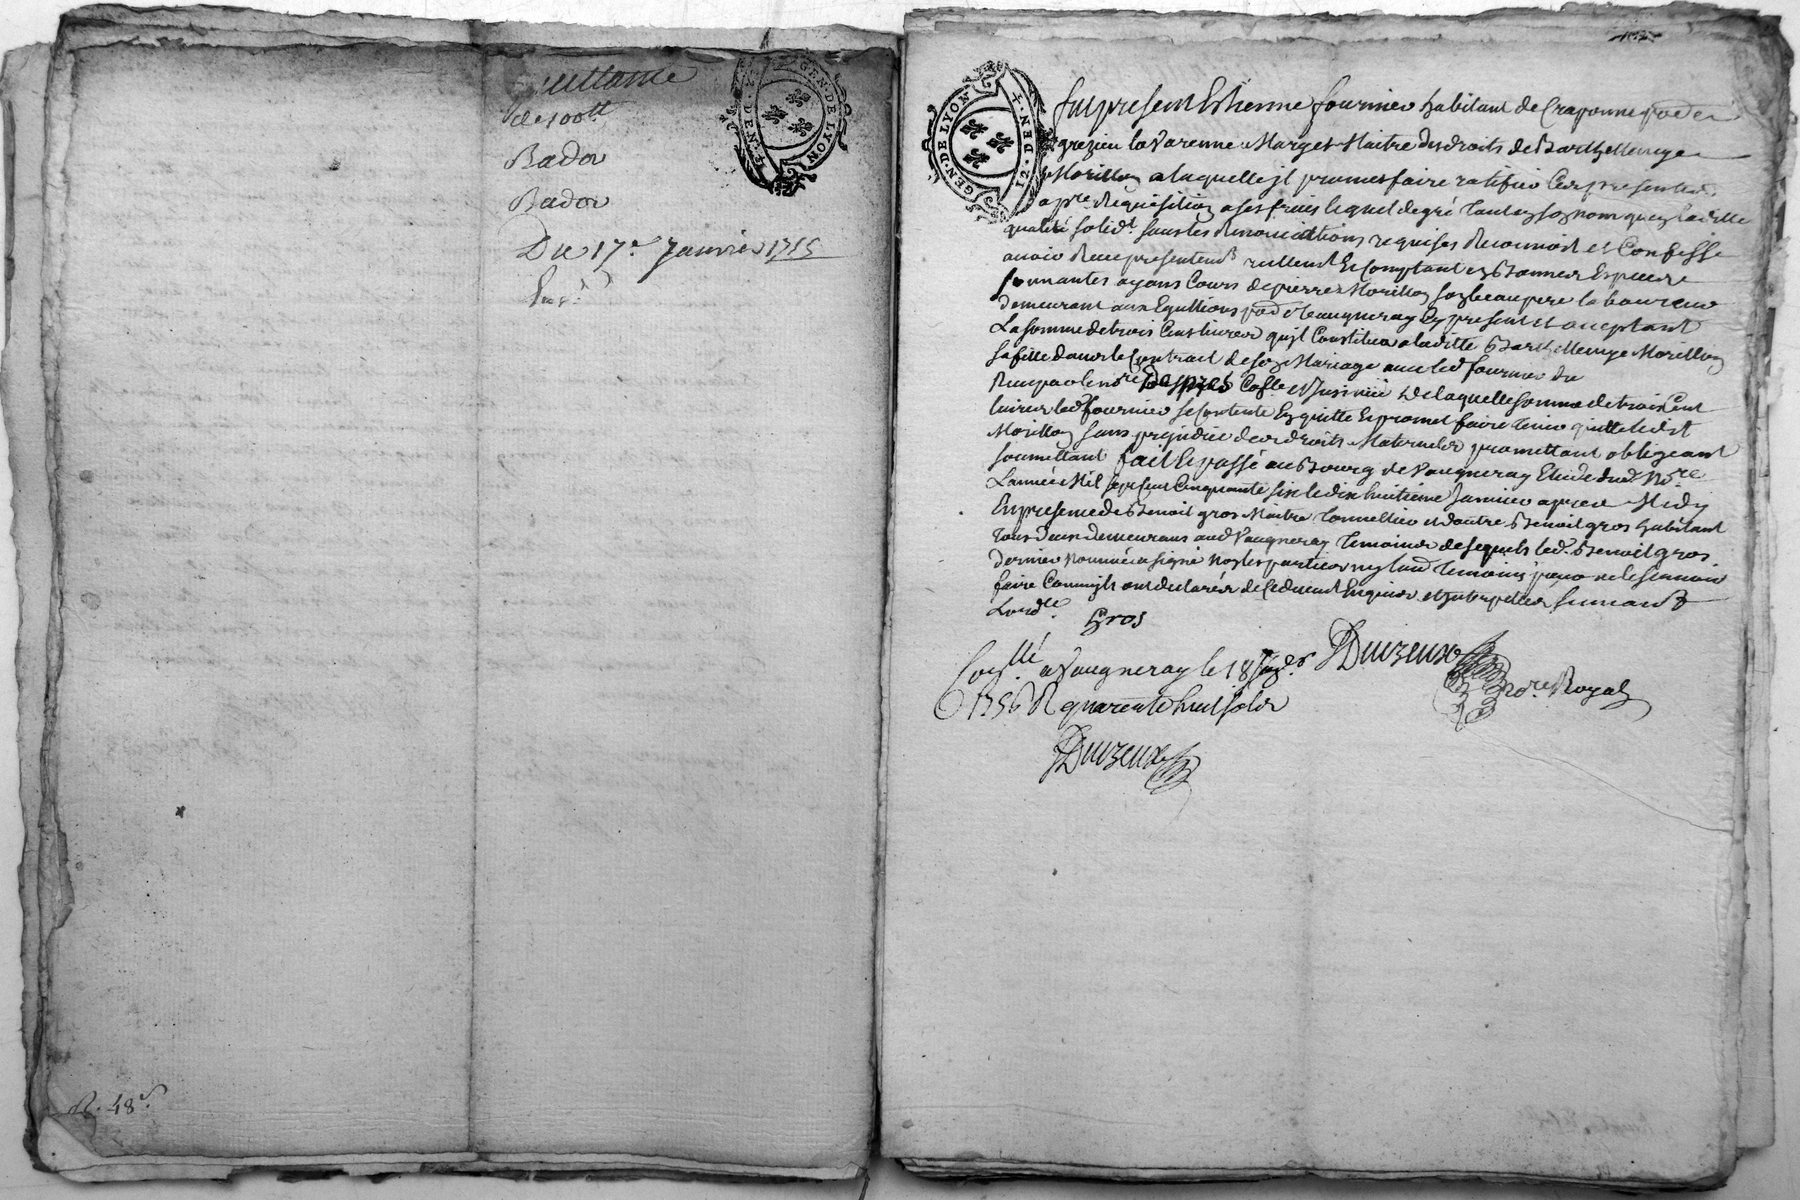 quittance
de 100tt
Bador
Bador
Du 17e Janvier 1715
GEN·DE·LYON
DEN·
R. 48s
GEN·DE LYON
12·DEN·
fut present Estienne fournier habitant de Craponne
grezieu la Varenne Marge Maitre des droits de Barthellemye
Morillon a laquelle jl promet faire ratifier Ces presentes
apre Requisition a ses frais lequel de gré tant en son nom qu'en laditte
qualité solidt. sous les Renonciations requises Reconnoit et Confesse
avoir Reçu presentemt rellemt Et Comptant en Bonnes Especes
sonnantes ayans Cours de pierre Morillon son beau pere laboureur
demeurant aux Eguillions de Vaugneray Cy present et acceptant
La somme de trois Cens livres qu'jl Constitua a laditte Barthellemye Morillon
sa fille dans le Contract de son Mariage avec led fournier du
Reçu pa le nore Colle et Jnsinüé De laquelle somme de trois Cent
livres led fournier se Contente En quitte Et promet faire tenir quitte ledit
Morillon sans prejudice de ses droits Maternels promettant obligeant
soumettant fait Et passé au Bourg de Vaugneray Etude dud Nore
L'année Mil sept Cent Cinquante six le dix huitieme Janvier apres Midy
En presence de Benoit gros Maitre tonnellier et d'autre Benoit gros habitant
tous Deux Demeurans aud Vaugneray temoins desquels led. Benoit gros
dernier nommé a signé non les parties ny l'aut. temoins pour ne le scavoir
faire Comm'jls ont declarés de Ce dument Enquis et Jnterpellés suivant
L'ordce. Gros
Conllé a Vaugneray le 18 Jer
1756 R quarente huit sols
Duvzeux
Nore Royal
Duvzeux